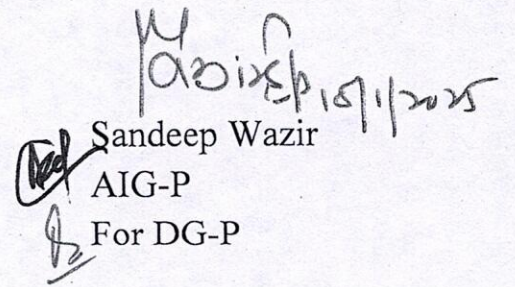 15/1/2025
Sandeep Wazir
AIG-P
For DG-P